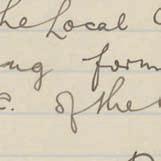 the Local
ing form
of the